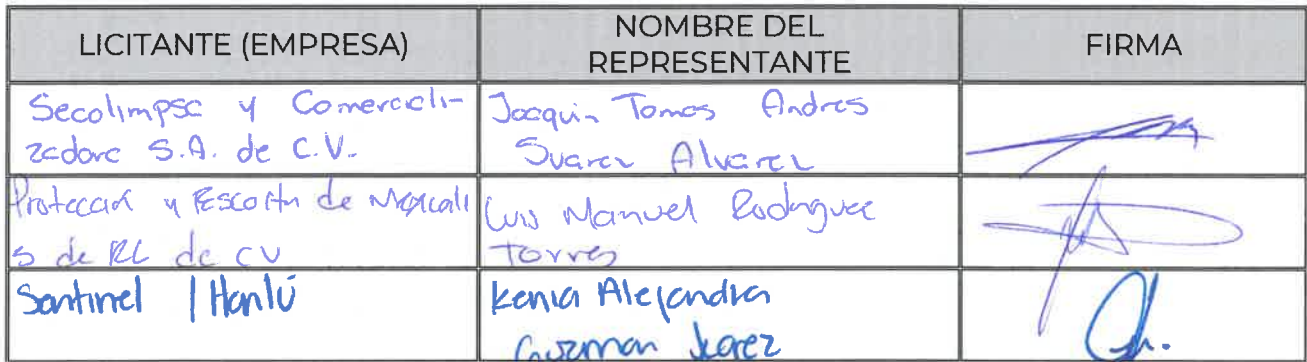 LICITANTE (EMPRESA)
NOMBRE DEL
REPRESENTANTE
FIRMA
Secolimpsa y Comerciali-
zadora S.A. de C.V.
Joaquin Tomas Andres
Suarez Alvarez
Protección y Escolta de Mexicali
S de RL de CV
Luis Manuel Rodriguez
Torres
Sentinel | Hanlú
Kenia Alejandra
Guzman Juarez